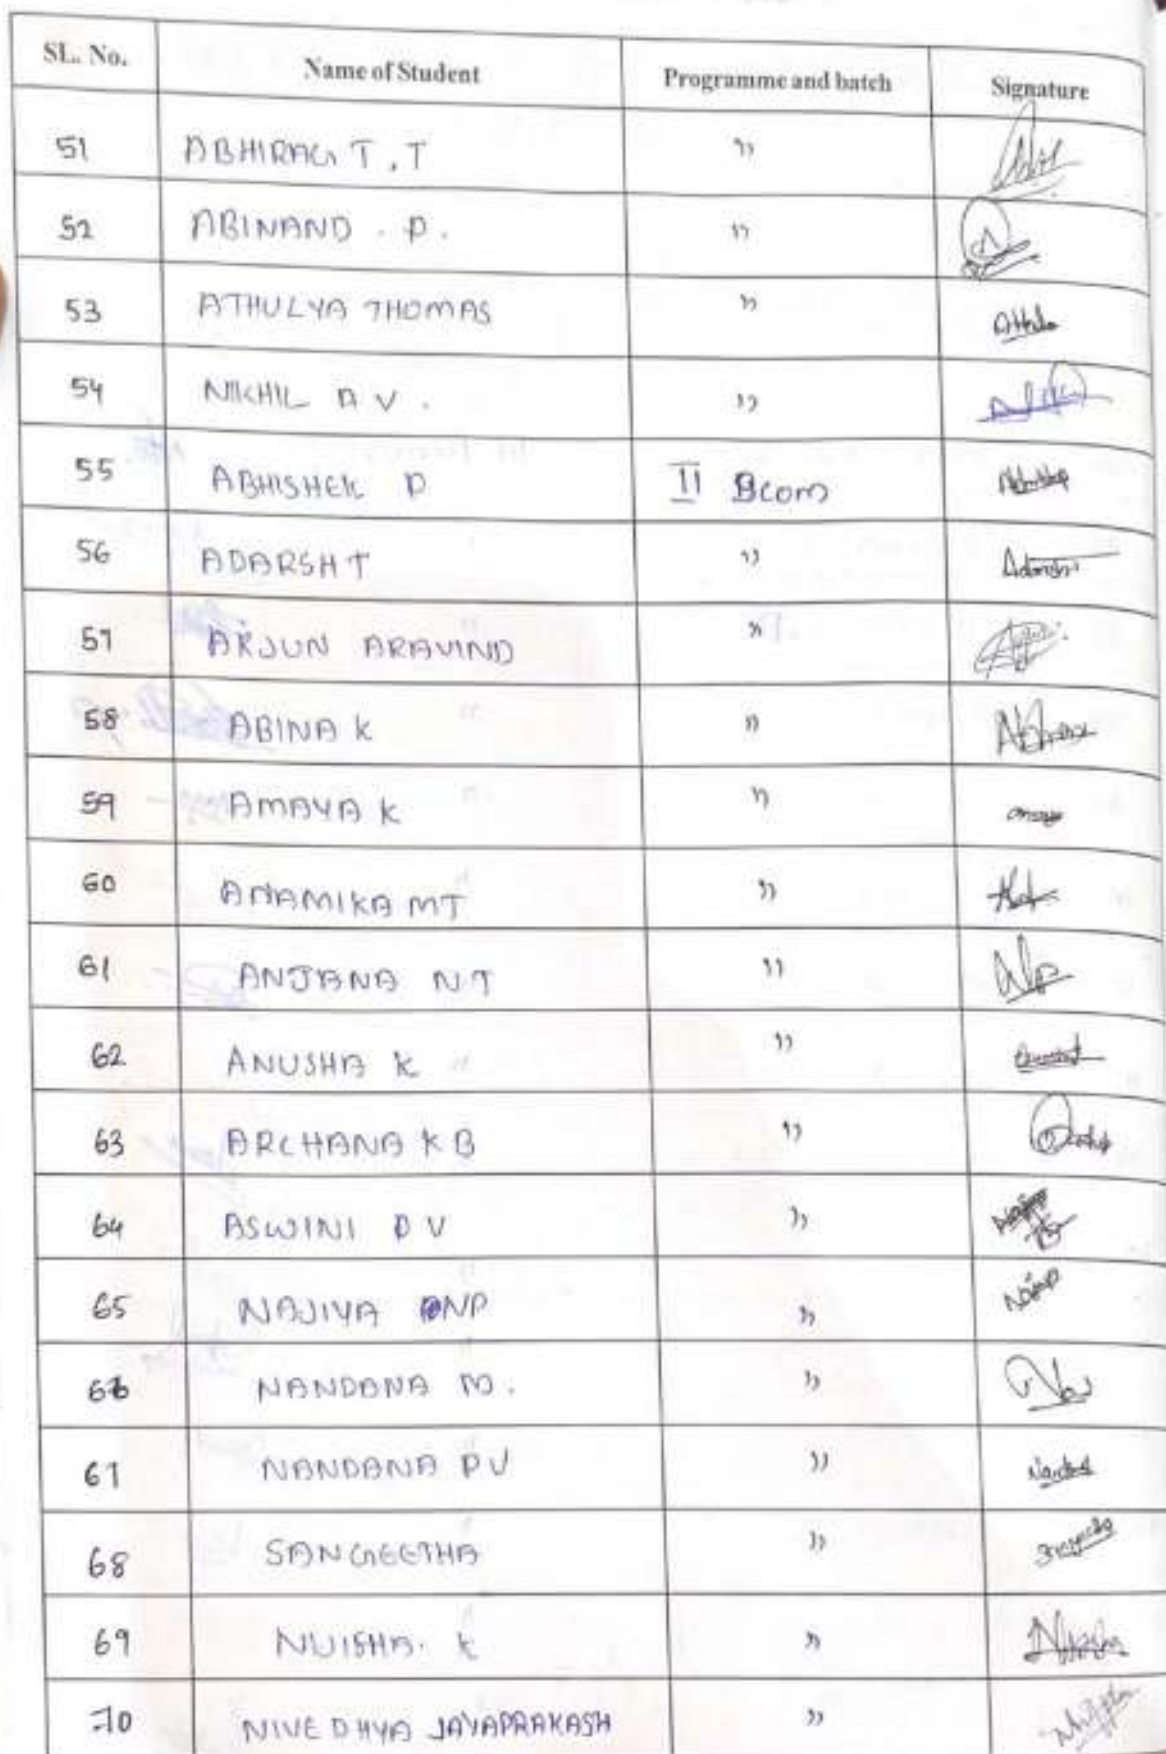 SL. No. Name of Student Programme and batch Signature
51 ABHIRAG T.T ,,
52 ABINAND . P. ,,
53 ATHULYA THOMAS ,,
54 NIKHIL A V . ,,
55 ABHISHEK P II Bcom
56 ADARSH T ,, Adarsh
57 ARJUN ARAVIND ,,
58 ABINA K ,,
59 AMAYA K ,,
60 ANAMIKA MT ,,
61 ANJANA NT ,,
62 ANUSHA K ,,
63 ARCHANA K B ,,
64 ASWINI P V ,,
65 NAJIYA NP ,,
66 NANDANA M. ,,
67 NANDANA PV ,,
68 SANGEETHA ,,
69 K ,,
70 NIVEDHYA JAYAPRAKASH ,,